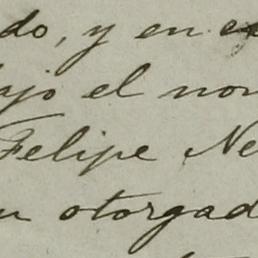 do, y en e
ajo el nom
Felipe Ne
n otorgad